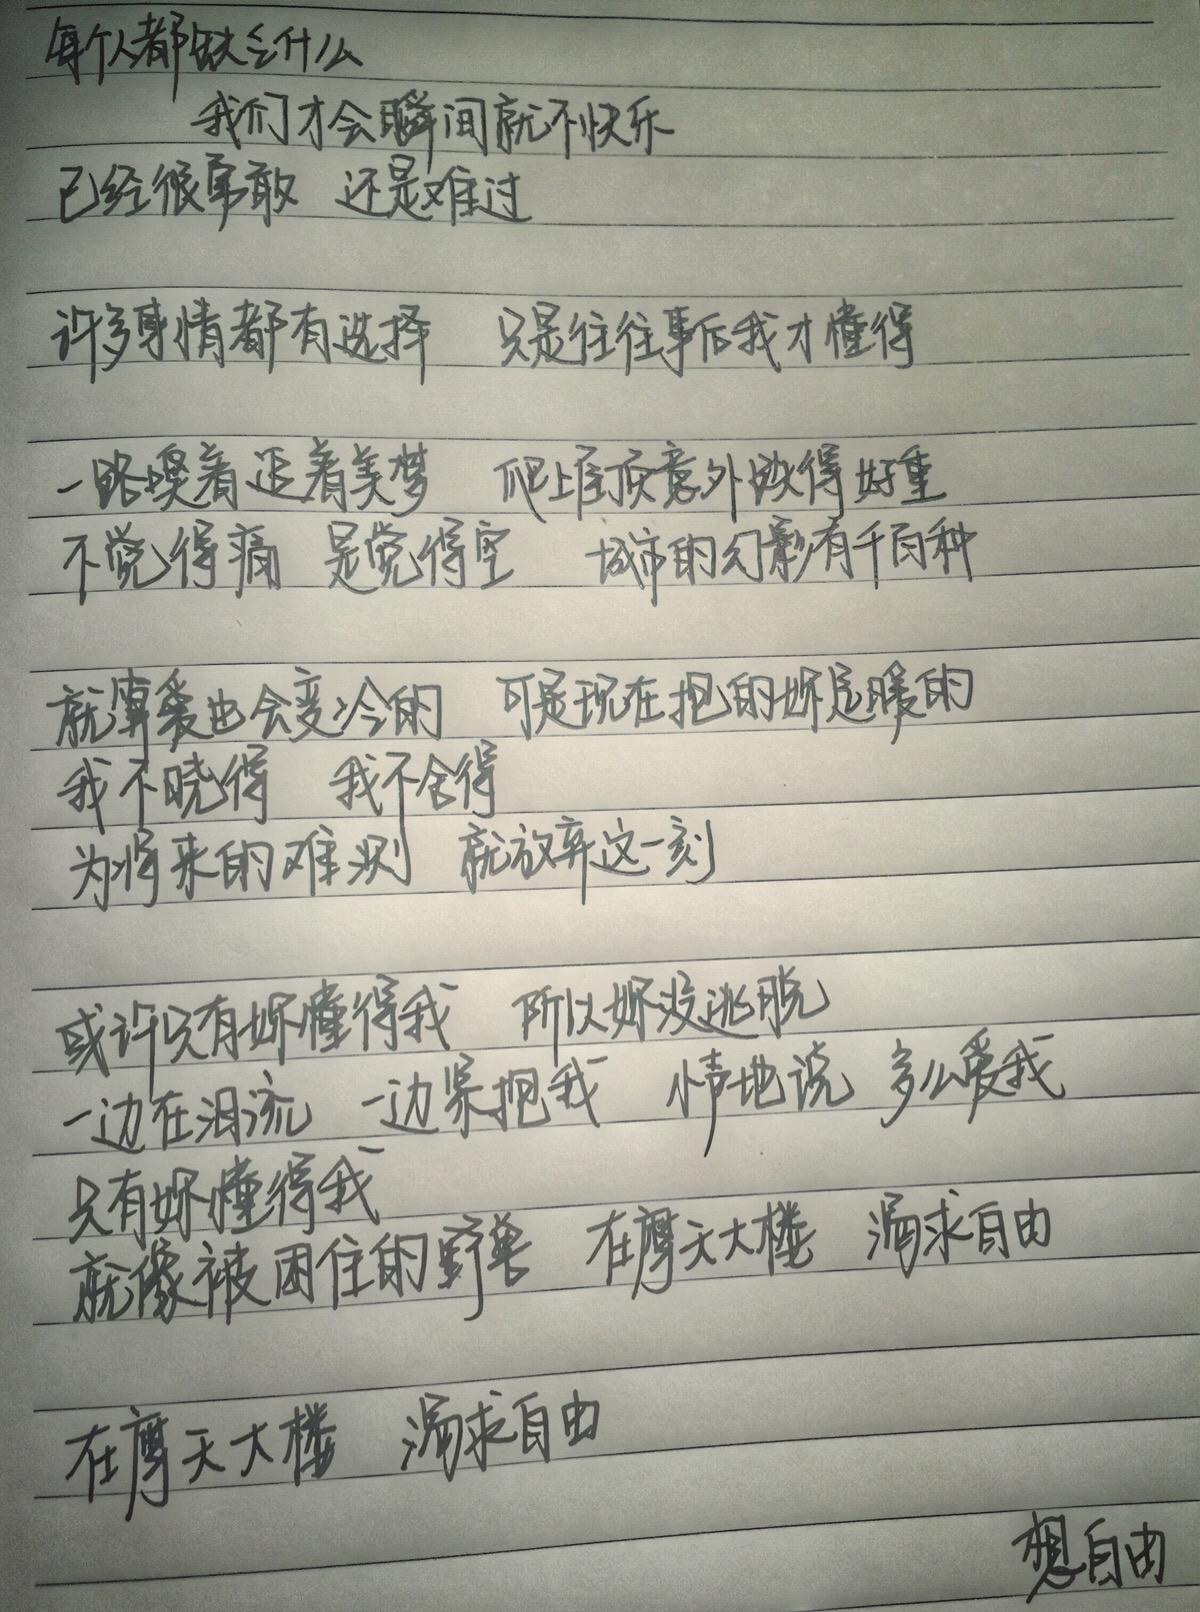 每个人都缺乏什么
我们才会瞬间就不快乐
已经很勇敢 还是难过
许多事情都有选择 只是往往事后我才懂得
一路嗅着追着美梦 爬上屋顶意外跌得好重
不觉得痛 是觉得空 城市的幻影有千百种
就算爱也会变冷的 可是现在抱的妳是暖的
我不晓得 我不舍得
为将来的难测 就放弃这一刻
或许只有妳懂得我 所以妳没逃脱
一边在泪流 一边紧抱我 小声地说 多么爱我
只有妳懂得我
就像被困住的野兽 在摩天大楼 渴求自由
在摩天大楼 渴求自由
想自由